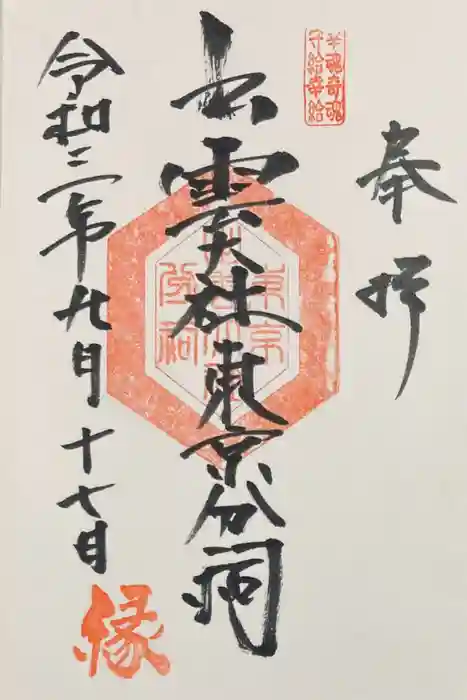 幸魂奇魂
守給幸給
奉拝
出雲大社東京分祠
東京
分祠
令和二年九月十七日
縁